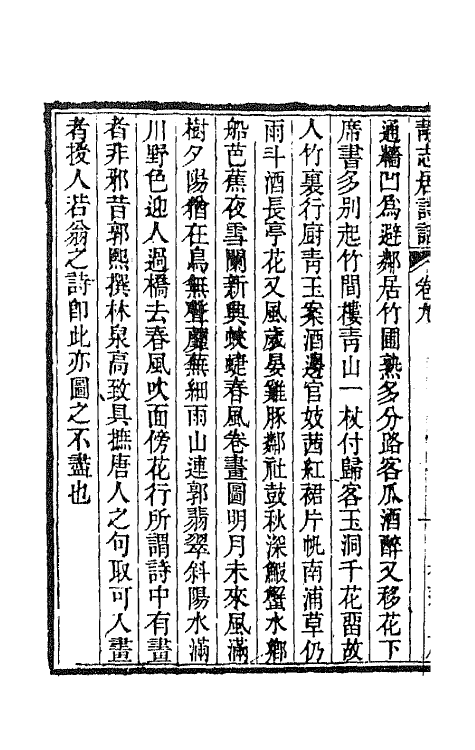 靜志居詩話 卷九
通牆凹爲避鄰居竹圃熟多分路客瓜酒醉又移花下
席書多別起竹間樓靑山一杖付歸客玉洞千花畱故
人竹裏行厨靑玉案酒邊官妓茜紅裙片帆南浦草仍
雨斗酒長亭花又風歲晏雞豚鄰社鼓秋深鰕蟹水鄉
船芭蕉夜雪闌新興蛺蜨春風卷畫圖明月未來風滿
樹夕陽猶在鳥無聲蘼蕪細雨山連郭翡翠斜陽水滿
川野色迎人過橋去春風吹面傍花行所謂詩中有畫
者非邪昔郭熙撰林泉高致具摭唐人之句取可入畫
者授人若翁之詩卽此亦圖之不盡也